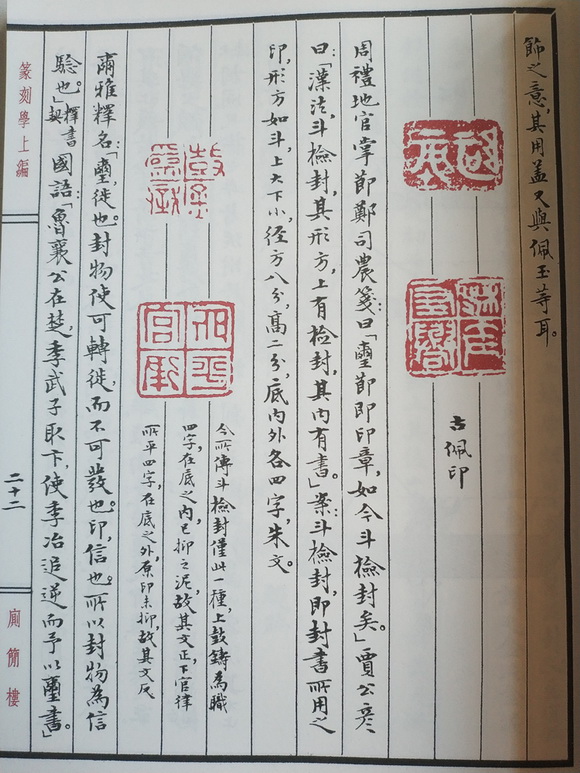 節之意,其用蓋又與佩玉等耳。
古佩印
周禮地官掌節鄭司農箋:曰「璽節即印章,如今斗檢封矣。」賈公彥
曰:「漢法,斗檢封,其形方,上有檢封,其內有書。」案:斗檢封,即封書所用之
印,形方如斗,上大下小,徑方八分,高二分,底內外各四字,朱文。
鼓鑄為職
官律所平
今所傳斗檢封僅此一種,上鼓鑄為職
四字,在底之內,已抑之泥,故其文正,下官律
所平四字,在底之外,原印未抑,故其文反
爾雅釋名:「璽,徙也。封物使可轉徙,而不可發也。印,信也。所以封物為信
驗也。」釋書契 國語:「魯襄公在楚,季武子取卞,使季冶追逆而予以璽書。」
篆刻學上編
二十二
廁簡樓